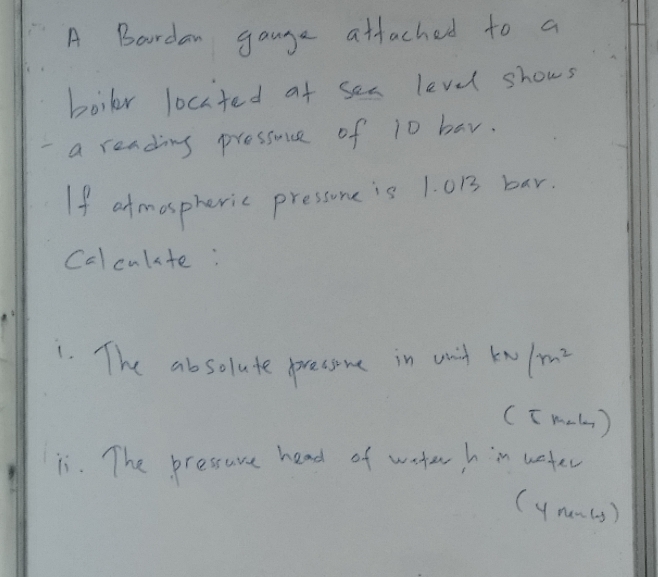 A Bourdon gauge attached to a
boiler located at sea level shows
a reading pressure of 10 bar.
If atmospheric pressure is 1.013 bar.
Calculate :
i. The absolute pressure in unit kN/m²
(5 marks)
ii. The pressure head of water, h in water
(4 marks)